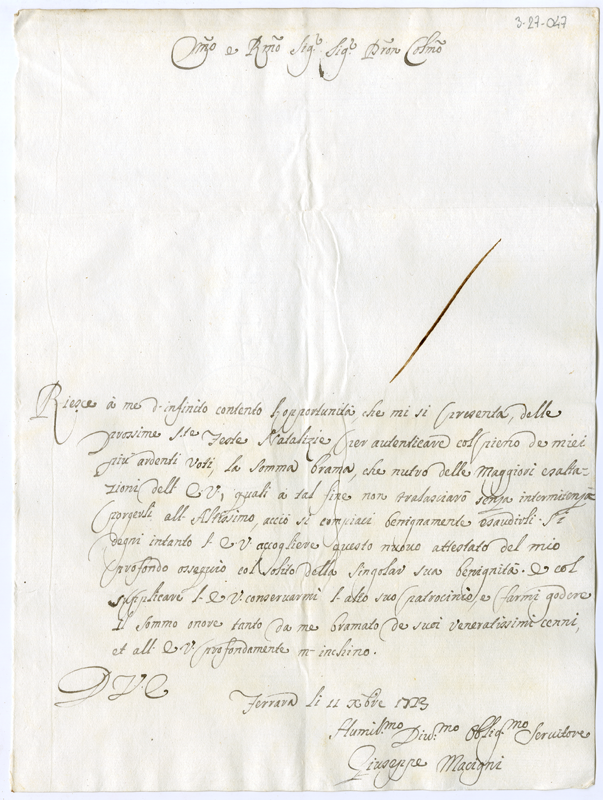 3-27-047
Em̃o e Rm̃o Sig.e Sig.e Pron Colm̃o
Riesce à me d'infinito contento l'opportunità che mi si presenta, delle
prossime S.te Feste Natalizie per autenticare col pieno de miei
più ardenti voti, la somma brama, che nutro delle maggiori esalta-
zioni dell' E V, quali à tal fine non tralasciarò senza intermissione
porgerli all' Altissimo, acciò si compiaci benignamente esaudirli. Si
degni intanto l' E V accogliere questo nuovo attestato del mio
profondo ossequio col solito della singolar sua benignità. E col
supplicare l' E V conservarmi l' alto suo patrocinio, e farmi godere
il sommo onore tanto da me bramato de suoi veneratissimi cenni,
et all' E V profondamente m' inchino.
D V E
Ferrara li 11 Xbre 1723
Humill.mo Div.mo Oblig.mo Servitore
Giuseppe Macigni